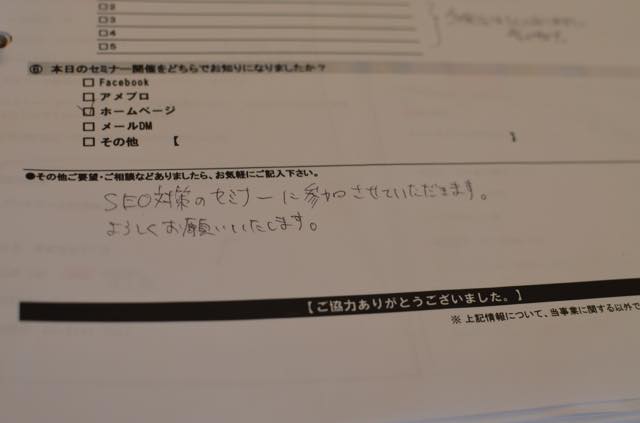 □2
□3
□4
□5
⑥ 本日のセミナー開催をどちらでお知りになりましたか?
□ Facebook
□ アメブロ
☑ ホームページ
□ メールDM
□ その他 【 】
●その他ご要望・ご相談などありましたら、お気軽にご記入下さい。
SEO対策のセミナーに参加させていただきます。
よろしくお願いいたします。
【ご協力ありがとうございました。】
※上記情報について、当事業に関する以外で